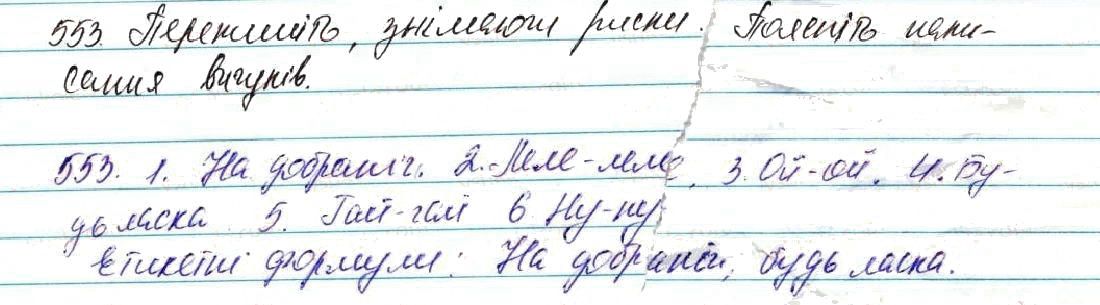 553. Перепишіть, знімаючи риски. Поясніть напи-
сання вигуків.
553. 1. На добраніч. 2. Леле-леле. 3. Ой-ой. 4. Бу-
дь ласка 5. Гай-гай 6. Ну-ну
етикетні формули: На добраніч, будь ласка.